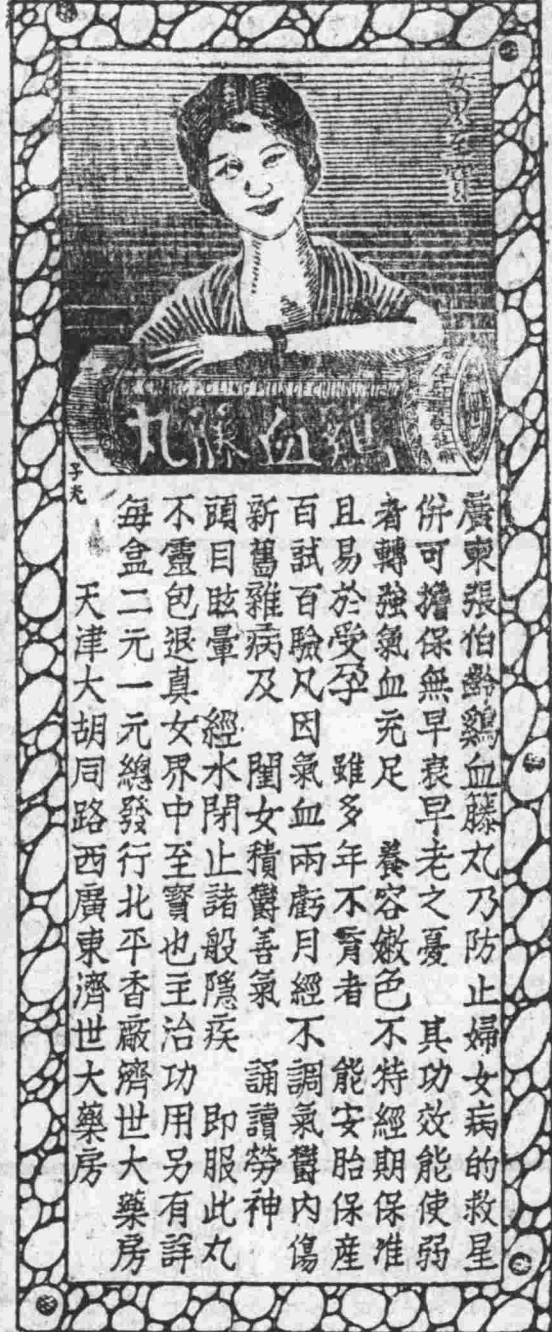 女界至寶
雞血籐丸
子光
廣東張伯齡鷄血籐丸乃防止婦女病的救星
併可擔保無早衰早老之憂 其功效能使弱
者轉強氣血充足 養容嫩色不特經期保准
且易於受孕 雖多年不育者 能安胎保産
百試百驗凡因氣血兩虧月經不調氣鬱內傷
新舊雜病及 閨女積鬱善氣 誦讀勞神
頭目眩暈 經水閉止諸般隱疾 即服此丸
不靈包退真女界中至寶也主治功用另有詳
每盒二元一元總發行北平香廠濟世大藥房
天津大胡同路西廣東濟世大藥房